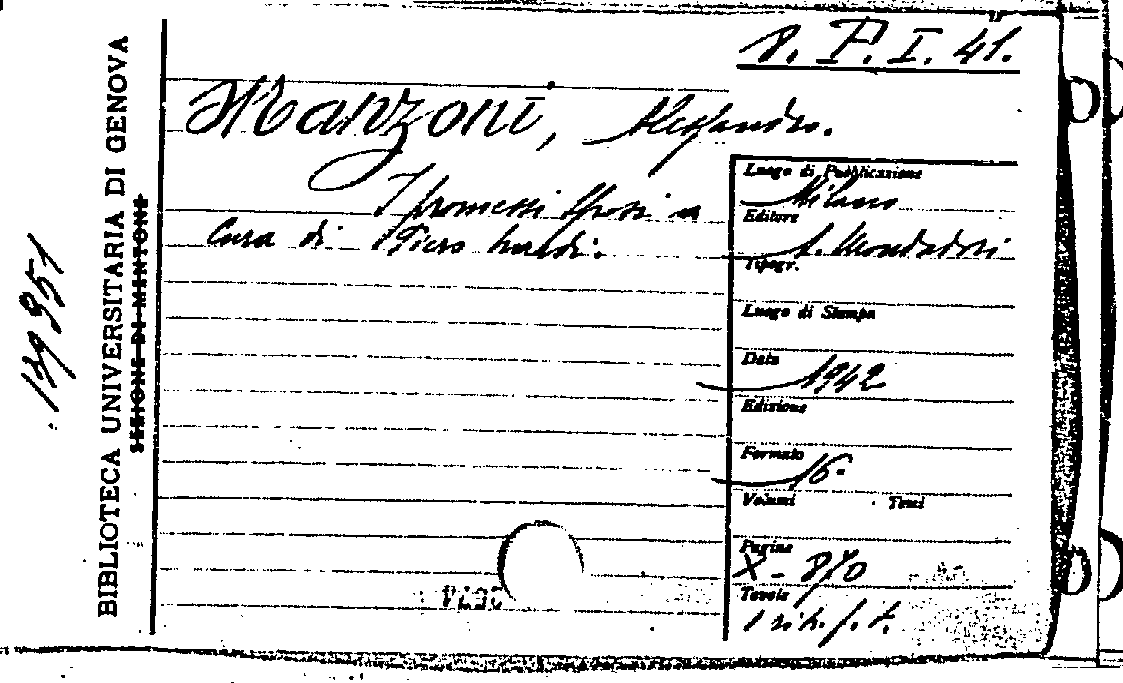 P. I. 41.
Manzoni, Alessandro.
I promessi sposi a
cura di Piero Nardi.
Luogo di Pubblicazione
Milano
Editore
A. Mondadori
Tipogr.
Luogo di Stampa
Data
1942
Edizione
Formato
16.
Volumi Tomi
Pagine
X - 810
Tavole
1 rit. f. t.
BIBLIOTECA UNIVERSITARIA DI GENOVA